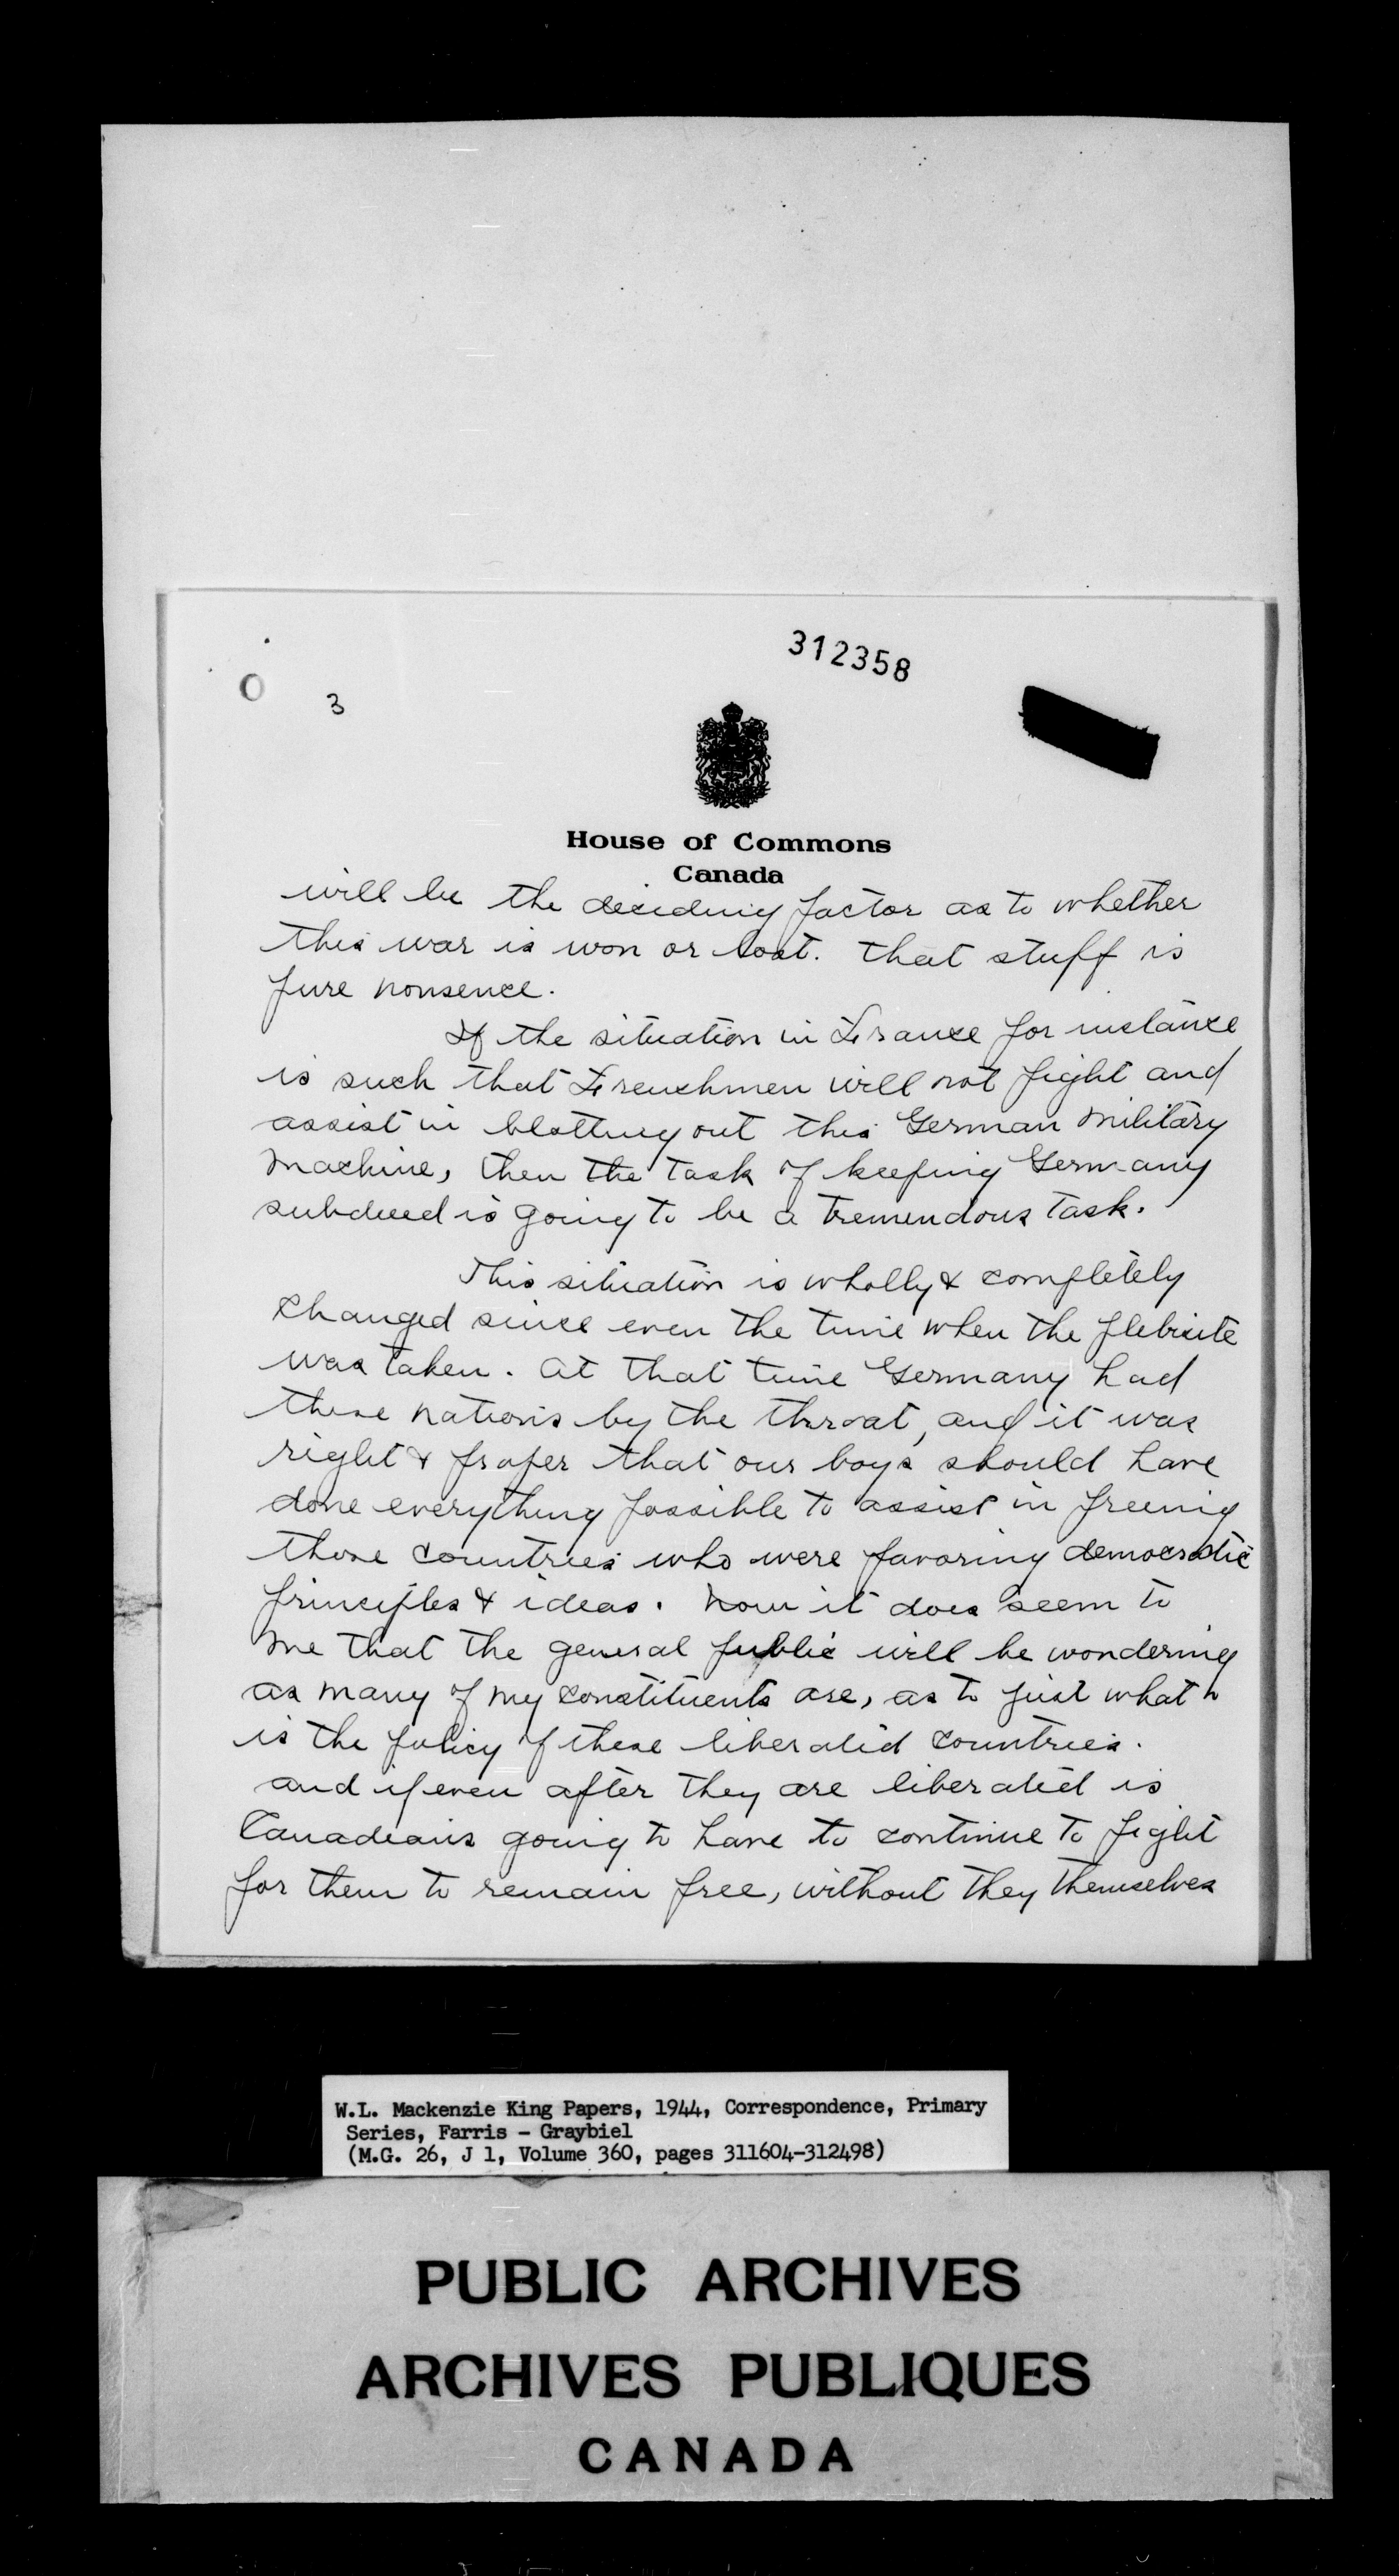 312358
3
House of Commons
Canada
will be the deciding factor as to whether
this war is won or lost. that stuff is
pure nonsence.
If the situation in France for instance
is such that Frenchmen will not fight and
assist in blotting out this German military
machine, then the task of keeping Germany
subdued is going to be a tremendous task.
This situation is wholly & completely
changed since even the time when the plebicite
was taken. At that time Germany had
these nations by the throat, and it was
right & proper that our boys should have
done everything possible to assist in freeing
those countries who were favoring democratic
principles & ideas. Now it does seem to
me that the general public will be wondering
as many of my constituents are, as to just what
is the policy of these liberated countries.
and if even after they are liberated is
Canadians going to have to continue to fight
for them to remain free, without they themselves
W.L. Mackenzie King Papers, 1944, Correspondence, Primary
Series, Farris - Graybiel
(M.G. 26, J 1, Volume 360, pages 311604-312498)
PUBLIC ARCHIVES
ARCHIVES PUBLIQUES
CANADA